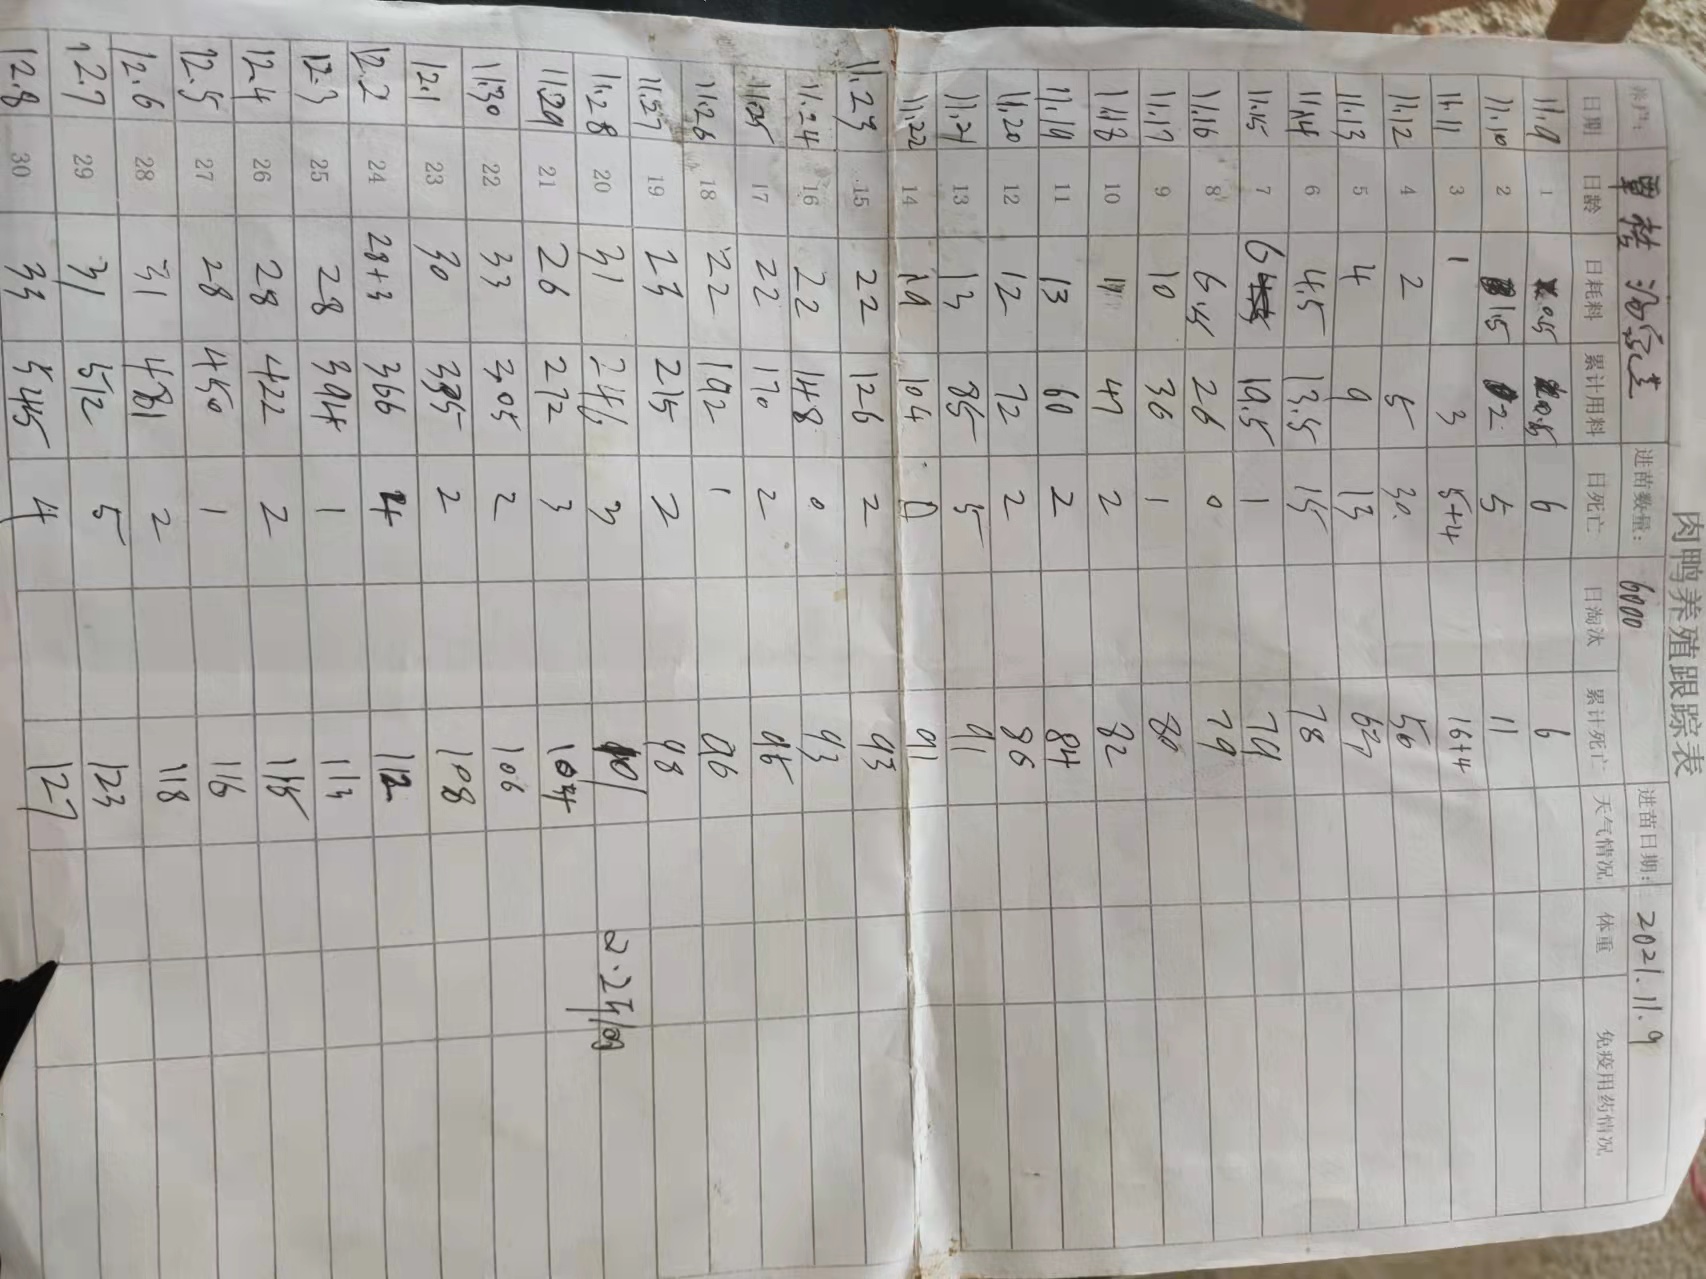 肉鸭养殖跟踪表
养户: 覃 进苗数量: 6000 进苗日期: 2021.11.9
日期 日龄 日耗料 累计用料 日死亡 日淘汰 累计死亡 天气情况 体重 免疫用药情况
11.9 1 0.5 0.5 6 6
11.10 2 1.5 2 5 11
11.11 3 1 3 5+4 16+4
11.12 4 2 5 30. 50
11.13 5 4 9 13 63
11.14 6 4.5 13.5 15 78
11.15 7 6 19.5 1 79
11.16 8 6.5 26 0 79
11.17 9 10 36 1 80
11.18 10 11 47 2 82
11.19 11 13 60 2 84
11.20 12 12 72 2 86
11.21 13 13 85 5 91
11.22 14 19 104 0 91
11.23 15 22 126 2 93
11.24 16 22 148 0 93
11.25 17 22 170 2 95
11.26 18 22 192 1 96
11.27 19 23 215 2 98
11.28 20 31 246 3 101
11.29 21 26 272 3 104
11.30 22 33 305 2 106
12.1 23 30 335 2 108
12.2 24 28+3 366 4 112
12.3 25 28 394 1 113
12.4 26 28 422 2 115
12.5 27 28 450 1 116
12.6 28 31 481 2 118
12.7 29 31 512 5 123
12.8 30 33 545 4 127